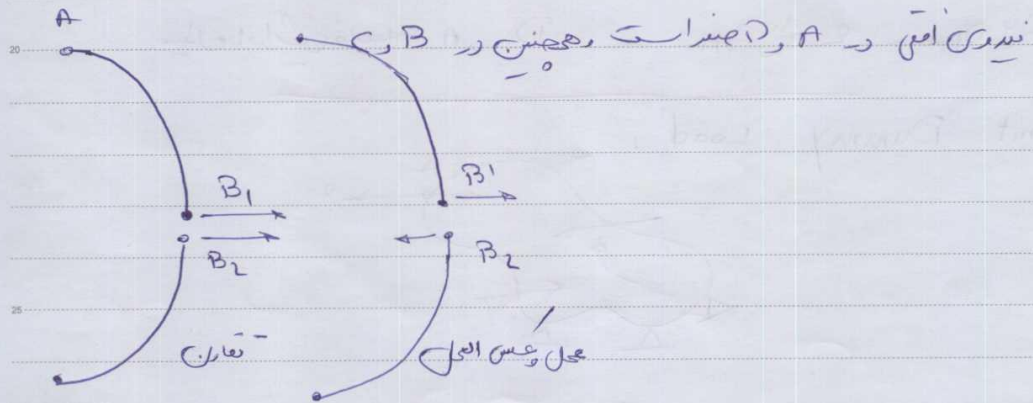 نیروی افقی در A و D صفر است و همچنین در B و C
20
A
B1 B'
B2 B2
25
تقارن عمل و عکس العمل